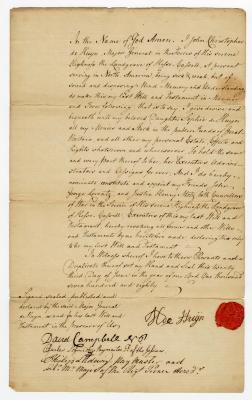 In the Name of God Amen. I John Christopher
de Huyn Major General in the Service of his serene
Highness the Landgrave of Hesse Cassell at present
serving in North America being sick & weak but of
sound and disposing Mind & Memory and Understanding
do make this my Last Will and Testament in Manner
and Form following that is to say. I give devise and
bequeath unto my beloved Daughter Sophia de Huyn
all my Monies and Stock in the publick Funds of Great
Britain and all other my personal Estate Effects and
Rights whatsoever and wheresoever To hold the same
and every part thereof to her, her Executors Adminis-
trators and Assigns for ever. And I do hereby
nominate constitute and appoint my Friends John
George and Justus Henry both Councellors
of War in the Service of his Serene Highness the Landgrave
of Hesse Cassell Executors of this my last Will and
Testament, hereby revoking all former and other Wills
and Testaments by me heretofore made declaring this only
to be my last Will and Testament
In Witness whereof I have to these Presents and a
Duplicate thereof set my Hand and Seal this twenty
third Day of June in the year of our Lord One thousand
seven hundred and eighty
Signed sealed published and
declared by the said Major General
de Huyn as and for his last Will and
Testament in the Presence of us
J C de Huyn
David Campbell